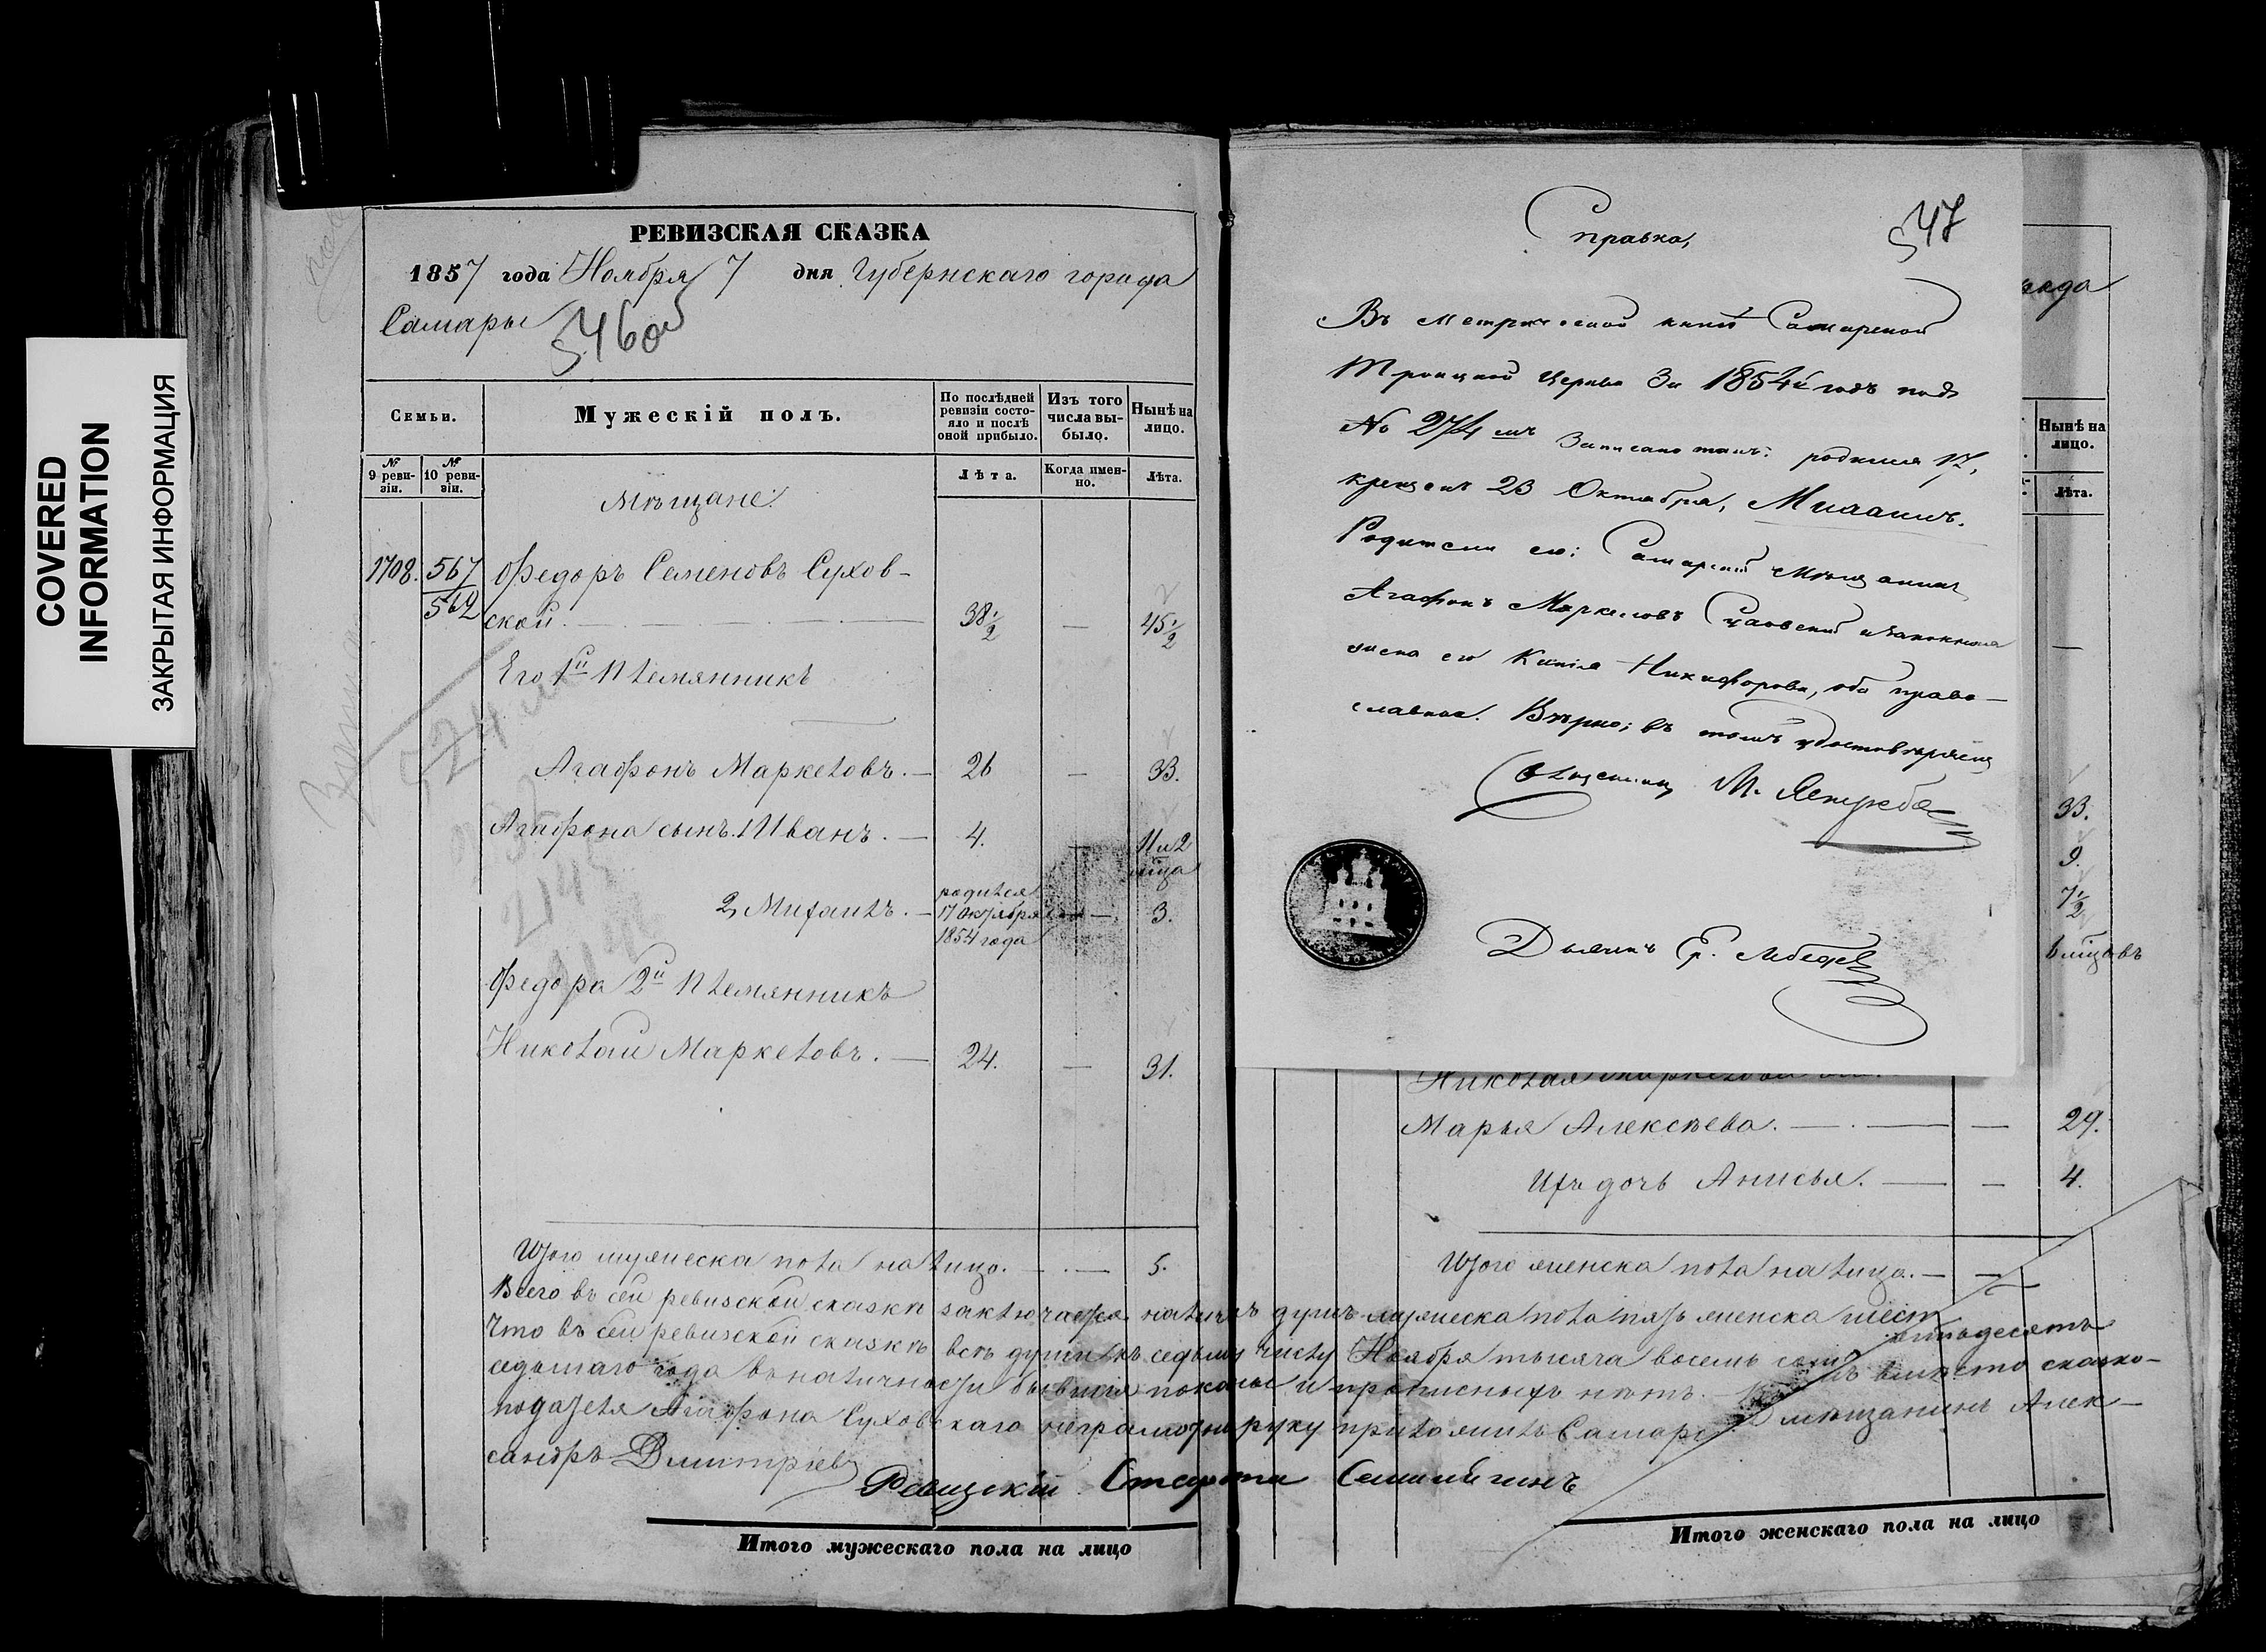 COVERED
INFORMATION
ЗАКРЫТАЯ ИНФОРМАЦИЯ
РЕВИЗСКАЯ СКАЗКА
1857 года Ноября 7 дня Губернскаго города
Самары
546об
Семьи.
Мужескій полъ.
По послѣдней
ревизіи состо-
яло и послѣ
оной прибыло.
Изъ того
числа вы-
было.
Нынѣ на
лицо.
№
9 реви-
зіи.
№
10 реви-
зіи.
Лѣта.
Когда имен-
но.
Лѣта.
Мѣщане:
1708. 567 Федоръ Семеновъ Сухов-
569 ской. 38 1/2 — 45 1/2
Его 1й Племянникъ
Агафонъ Маркеловъ. — 26 — 33.
Агафона сынъ. 1 Иванъ. — 4. 11 и 2
мѣца
2, Михаилъ. — родился
17 Октября — 3.
1854 года
Федора 2й Племянникъ
Николай Маркеловъ. — 24. — 31.
Итого мужеска пола на лицо. — 5.
Всего въ сей ревизской сказкѣ заключается наличныхъ душъ мужеска пола пять женска шесть
Что въ сей ревизской сказкѣ всѣ души къ седьму числу Ноября тысяча восемь сотъ пятьдесятъ
седьмаго года въ наличности бывшія показаны и прописныхъ нѣтъ. вмѣсто сказко-
подателя Агафона Суховскаго неграмотн руку приложилъ Самарс мѣщанинъ Алек-
сандръ Дмитріевъ
Ревизскій Староста
Итого мужескаго пола на лицо
547
Справка,
Въ метрической книгѣ Самарской
Троицкой Церкви за 1854й годъ подъ
№ 274мъ записано такъ: родился 17,
крещенъ 23 Октября, Михаилъ.
Родители его: Самарскій мѣщанинъ
Агафонъ Маркеловъ Суховской и законная
жена его Никифорова, оба право-
славные. Вѣрно; въ томъ удостовѣряемъ
Священникъ М.
Дьяконъ Лебедев
Нынѣ на
лицо.
Лѣта.
—
33.
9.
7 1/2
6 мѣцовъ
Николая Маркелова
Марья Алексѣева. — — 29.
Ихъ дочь Анисья. — — 4.
Итого женска пола на лицо. —
Итого женскаго пола на лицо